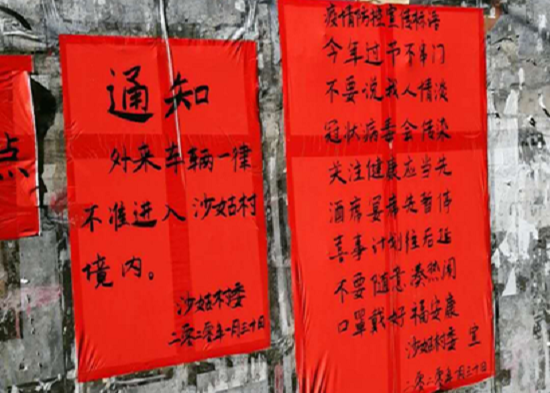 点
通知
外来车辆一律
不准进入沙姑村
境内。
沙姑村委
二零二零年一月三十日
疫情防控宣传标语
今年过节不串门
不要说我人情淡
冠状病毒会传染
关注健康应当先
酒席宴席先暂停
喜事计划往后延
不要随意凑热闹
口罩戴好福安康
沙姑村委 宣
二零二零年一月三十日